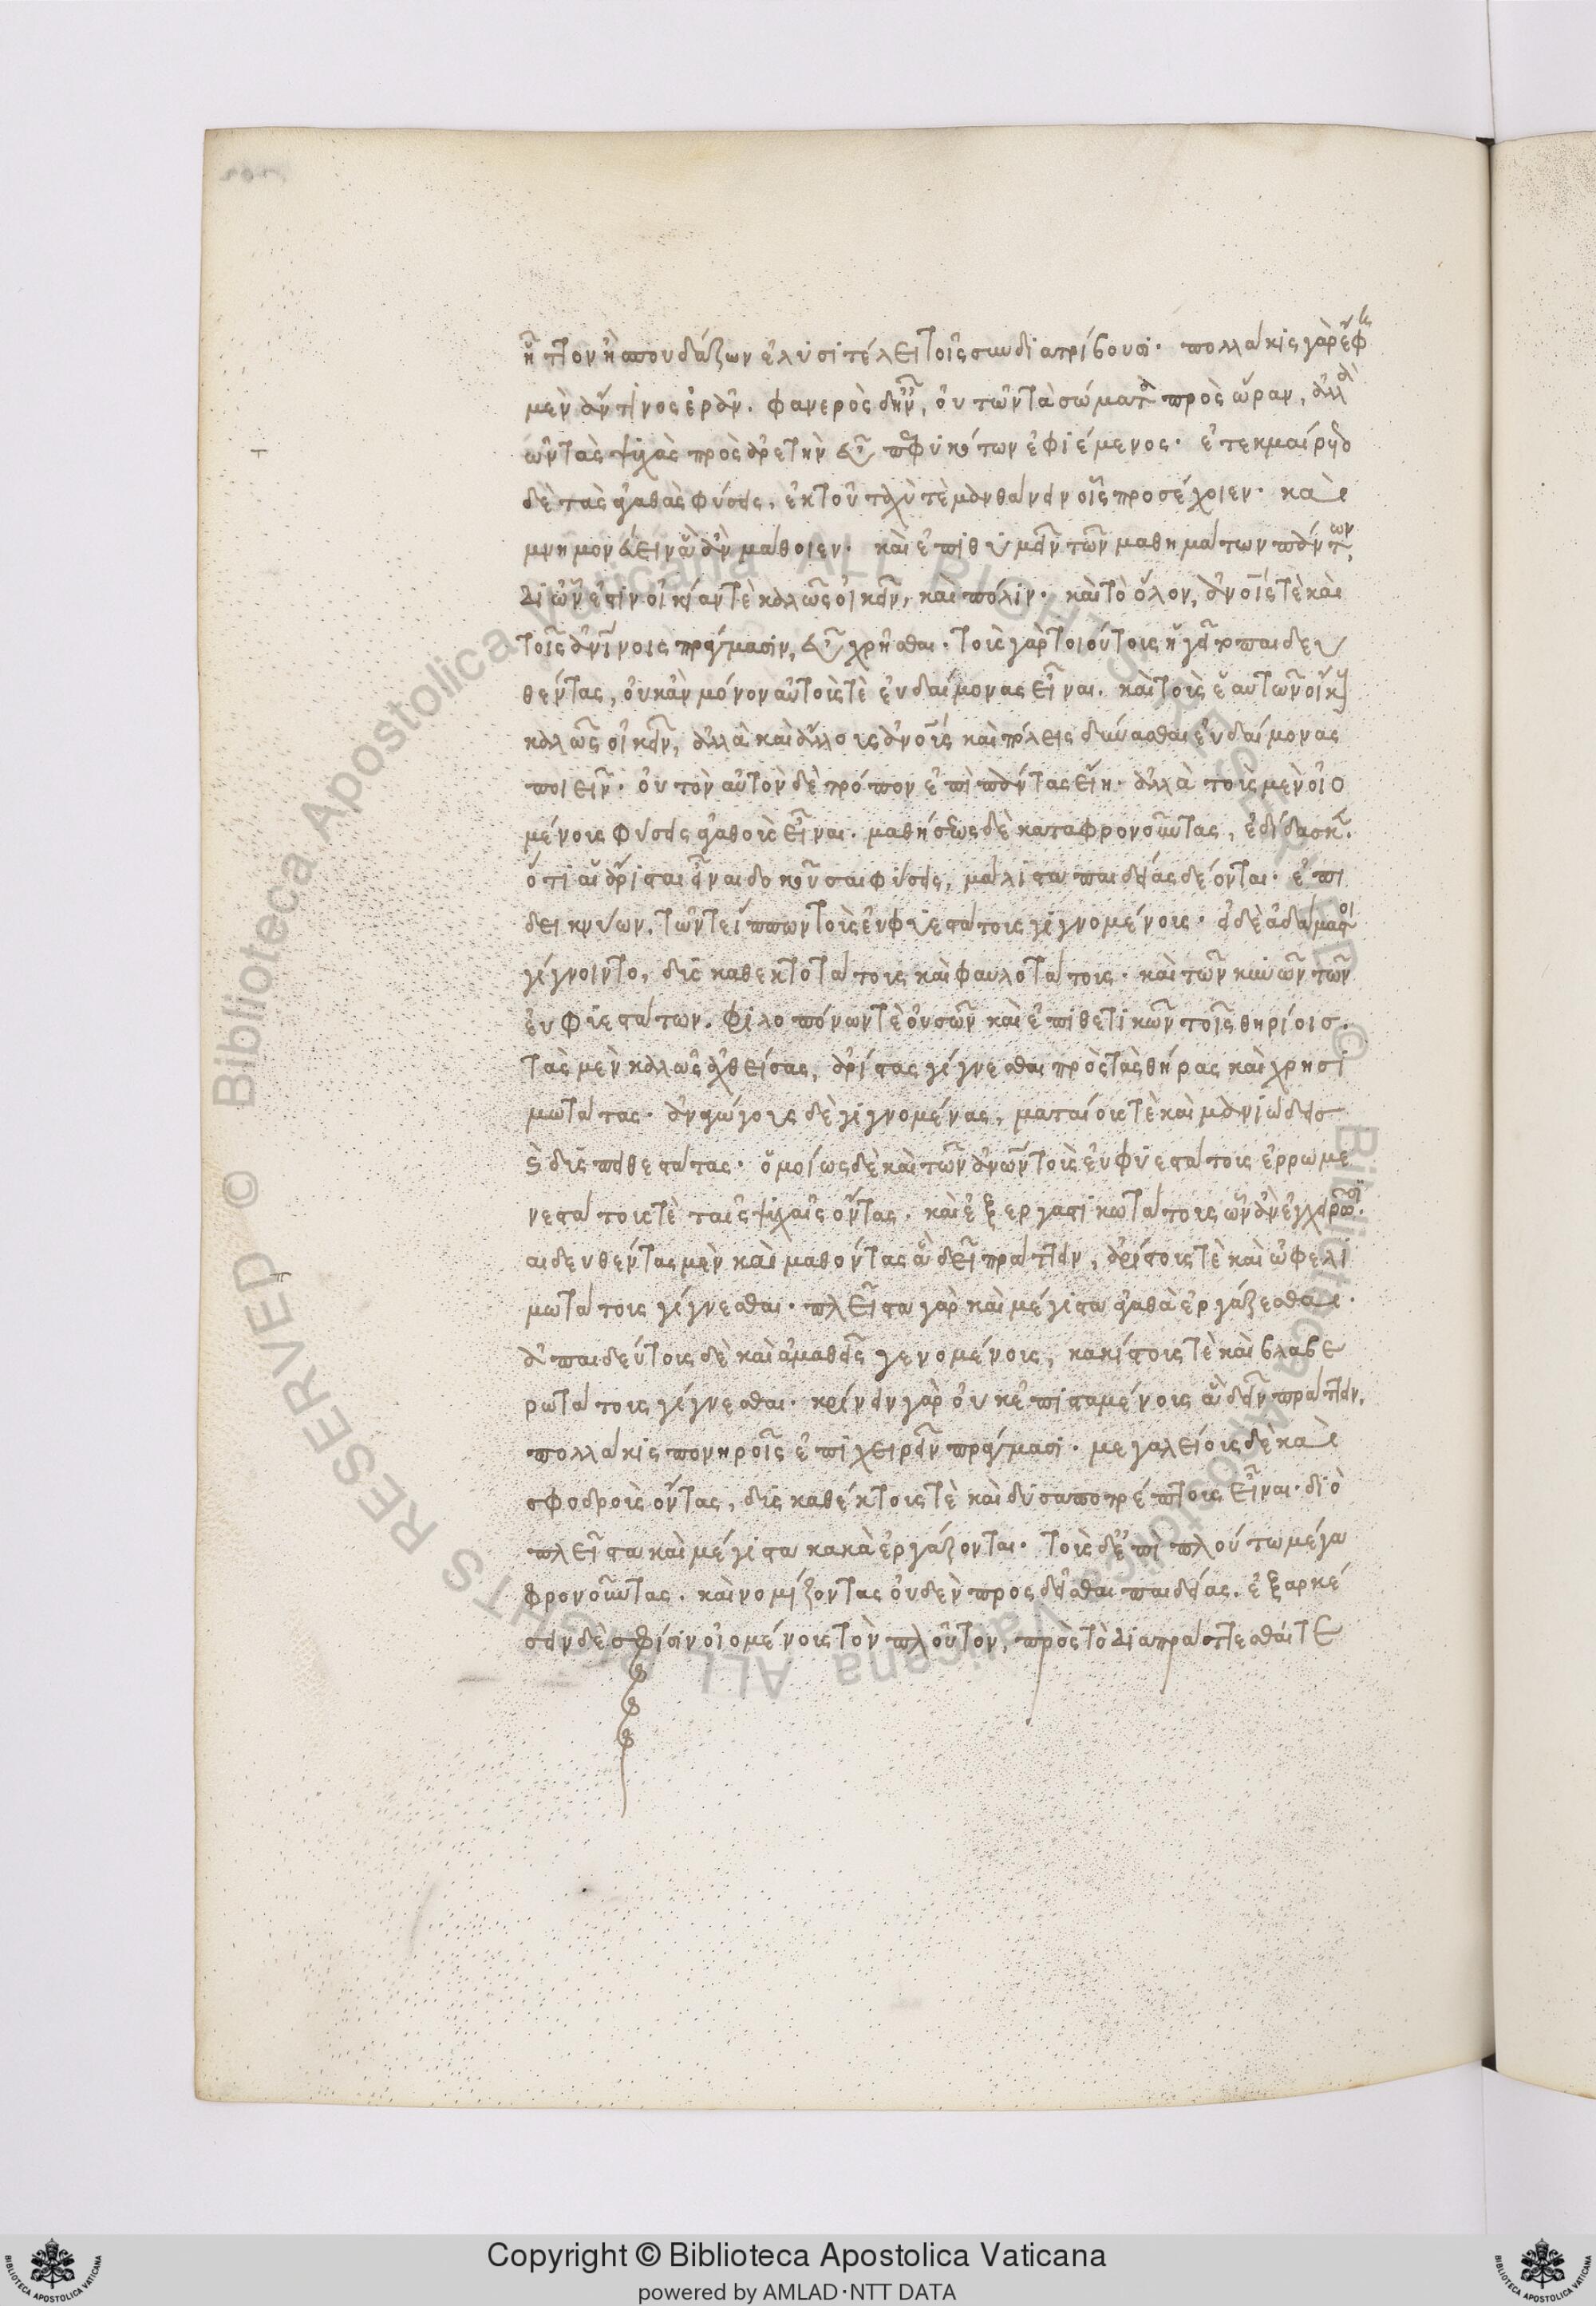 ἧττον ἢ σπουδάζων ἐλυσιτέλει τοῖς συνδιατρίβουσι· πολλάκις γὰρ ἔφη
μὲν ἄν τινος ἐρᾶν. φανερὸς δ' ἦν, οὐ τῶν τὰ σώματα πρὸς ὥραν, ἀλλὰ
ὧν τὰς ψυχὰς πρὸς ἀρετὴν εὖ πεφυκότων ἐφιέμενος. ἐτεκμαίρετο
δὲ τὰς ἀγαθὰς φύσεις, ἐκ τοῦ ταχύ τε μανθάνειν οἷς προσέχοιεν. καὶ
μνημονεύειν ἃ ἂν μάθοιεν. καὶ ἐπιθυμεῖν τῶν μαθημάτων πάντων,
δι' ὧν ἔστιν οἰκίαν τε καλῶς οἰκεῖν, καὶ πόλιν. καὶ τὸ ὅλον, ἀνοις τε καὶ
τοῖς ἀνίνοις πράγμασιν, εὖ χρῆσθαι. τοὺς γὰρ τοιούτους ἡγεῖτο παιδευ
θέντας, οὐκ ἂν μόνον αὐτούς τε εὐδαίμονας εἶναι. καὶ τοὺς ἑαυτῶν οἴκους
καλῶς οἰκεῖν, ἀλλὰ καὶ ἄλλους ἀνους καὶ πόλεις δύνασθαι εὐδαίμονας
ποιεῖν. οὐ τὸν αὐτὸν δὲ τρόπον ἐπὶ πάντας εἴη. ἀλλὰ τοὺς μὲν οἰο
μένους φύσεις ἀγαθοὺς εἶναι. μαθήσεως δὲ καταφρονοῦντας, ἐδίδασκεν.
ὅτι αἱ ἄρισται εἶναι δοκοῦσαι φύσεις, μάλιστα παιδείας δέονται. ἐπι
δεικνύων, τῶν τε ἵππων τοὺς εὐφυεστάτους γιγνομένους. εἰ δὲ ἀδάμαστοι
γίγνοιντο, δυσκαθεκτοτάτους καὶ φαυλοτάτους. καὶ τῶν κυνῶν τῶν
εὐφυεστάτων. φιλοπόνων τε οὐσῶν καὶ ἐπιθετικῶν τοῖς θηρίοις.
τὰς μὲν καλῶς ἀχθείσας, ἀρίστας γίγνεσθαι πρὸς τὰς θήρας καὶ χρησι
μωτάτας. ἀναγώγους δὲ γιγνομένας, ματαίους τε καὶ μανιώδεις
καὶ δυσπειθεστάτας. ὁμοίως δὲ καὶ τῶν ἀνῶν τοὺς εὐφυεστάτους ἐρρωμε
νεστάτους τε ταῖς ψυχαῖς ὄντας. καὶ ἐξεργαστικωτάτους ὧν ἂν ἐγχειρῶσι.
αιδευθέντας μὲν καὶ μαθόντας ἃ δεῖ πράττειν, ἀρίστους τε καὶ ὠφελι
μωτάτους γίγνεσθαι. πλεῖστα γὰρ καὶ μέγιστα ἀγαθὰ ἐργάζεσθαι.
ἀπαιδεύτους δὲ καὶ ἀμαθεῖς γενομένους, κακίστους τε καὶ βλαβε
ρωτάτους γίγνεσθαι. κρίνειν γὰρ οὐκ ἐπισταμένους ἃ δεῖν πράττειν,
πολλάκις πονηροῖς ἐπιχειρεῖν πράγμασι. μεγαλείους δὲ καὶ
σφοδροὺς ὄντας, δυσκαθέκτους τε καὶ δυσαποτρέπτους εἶναι. διὸ
πλεῖστα καὶ μέγιστα κακὰ ἐργάζονται. τοὺς δ' ἐπὶ πλούτω μέγα
φρονοῦντας. καὶ νομίζοντας οὐδὲν προσδεῖσθαι παιδείας. ἐξαρκέ
σειν δὲ σφίσιν οἰομένους τὸν πλοῦτον, πρὸς τὸ διαπράττεσθαί τε